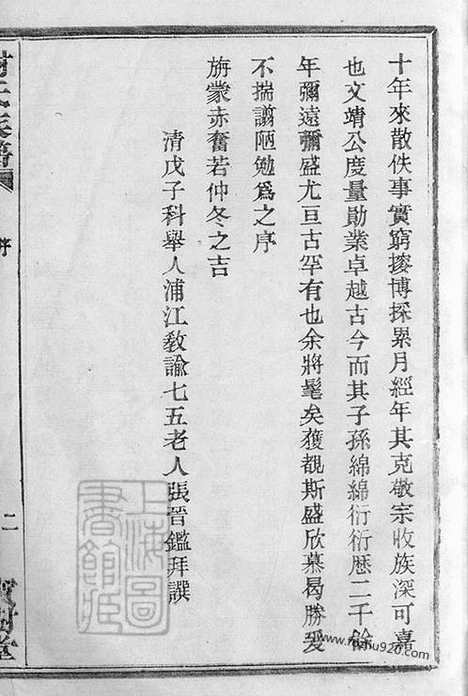 十年來散佚事實窮搜博採累月經年其克敬宗收族深可嘉
也文靖公度量勛業卓越古今而其子孫綿綿衍衍歷二千餘
年彌遠彌盛尤亘古罕有也余將髦矣獲覩斯盛欣慕曷勝爰
不揣譾陋勉爲之序
旃蒙赤奮若仲冬之吉
清戊子科舉人浦江敎諭七五老人張晉鑑拜譔
氏族譜
序
二
上海圖書館藏